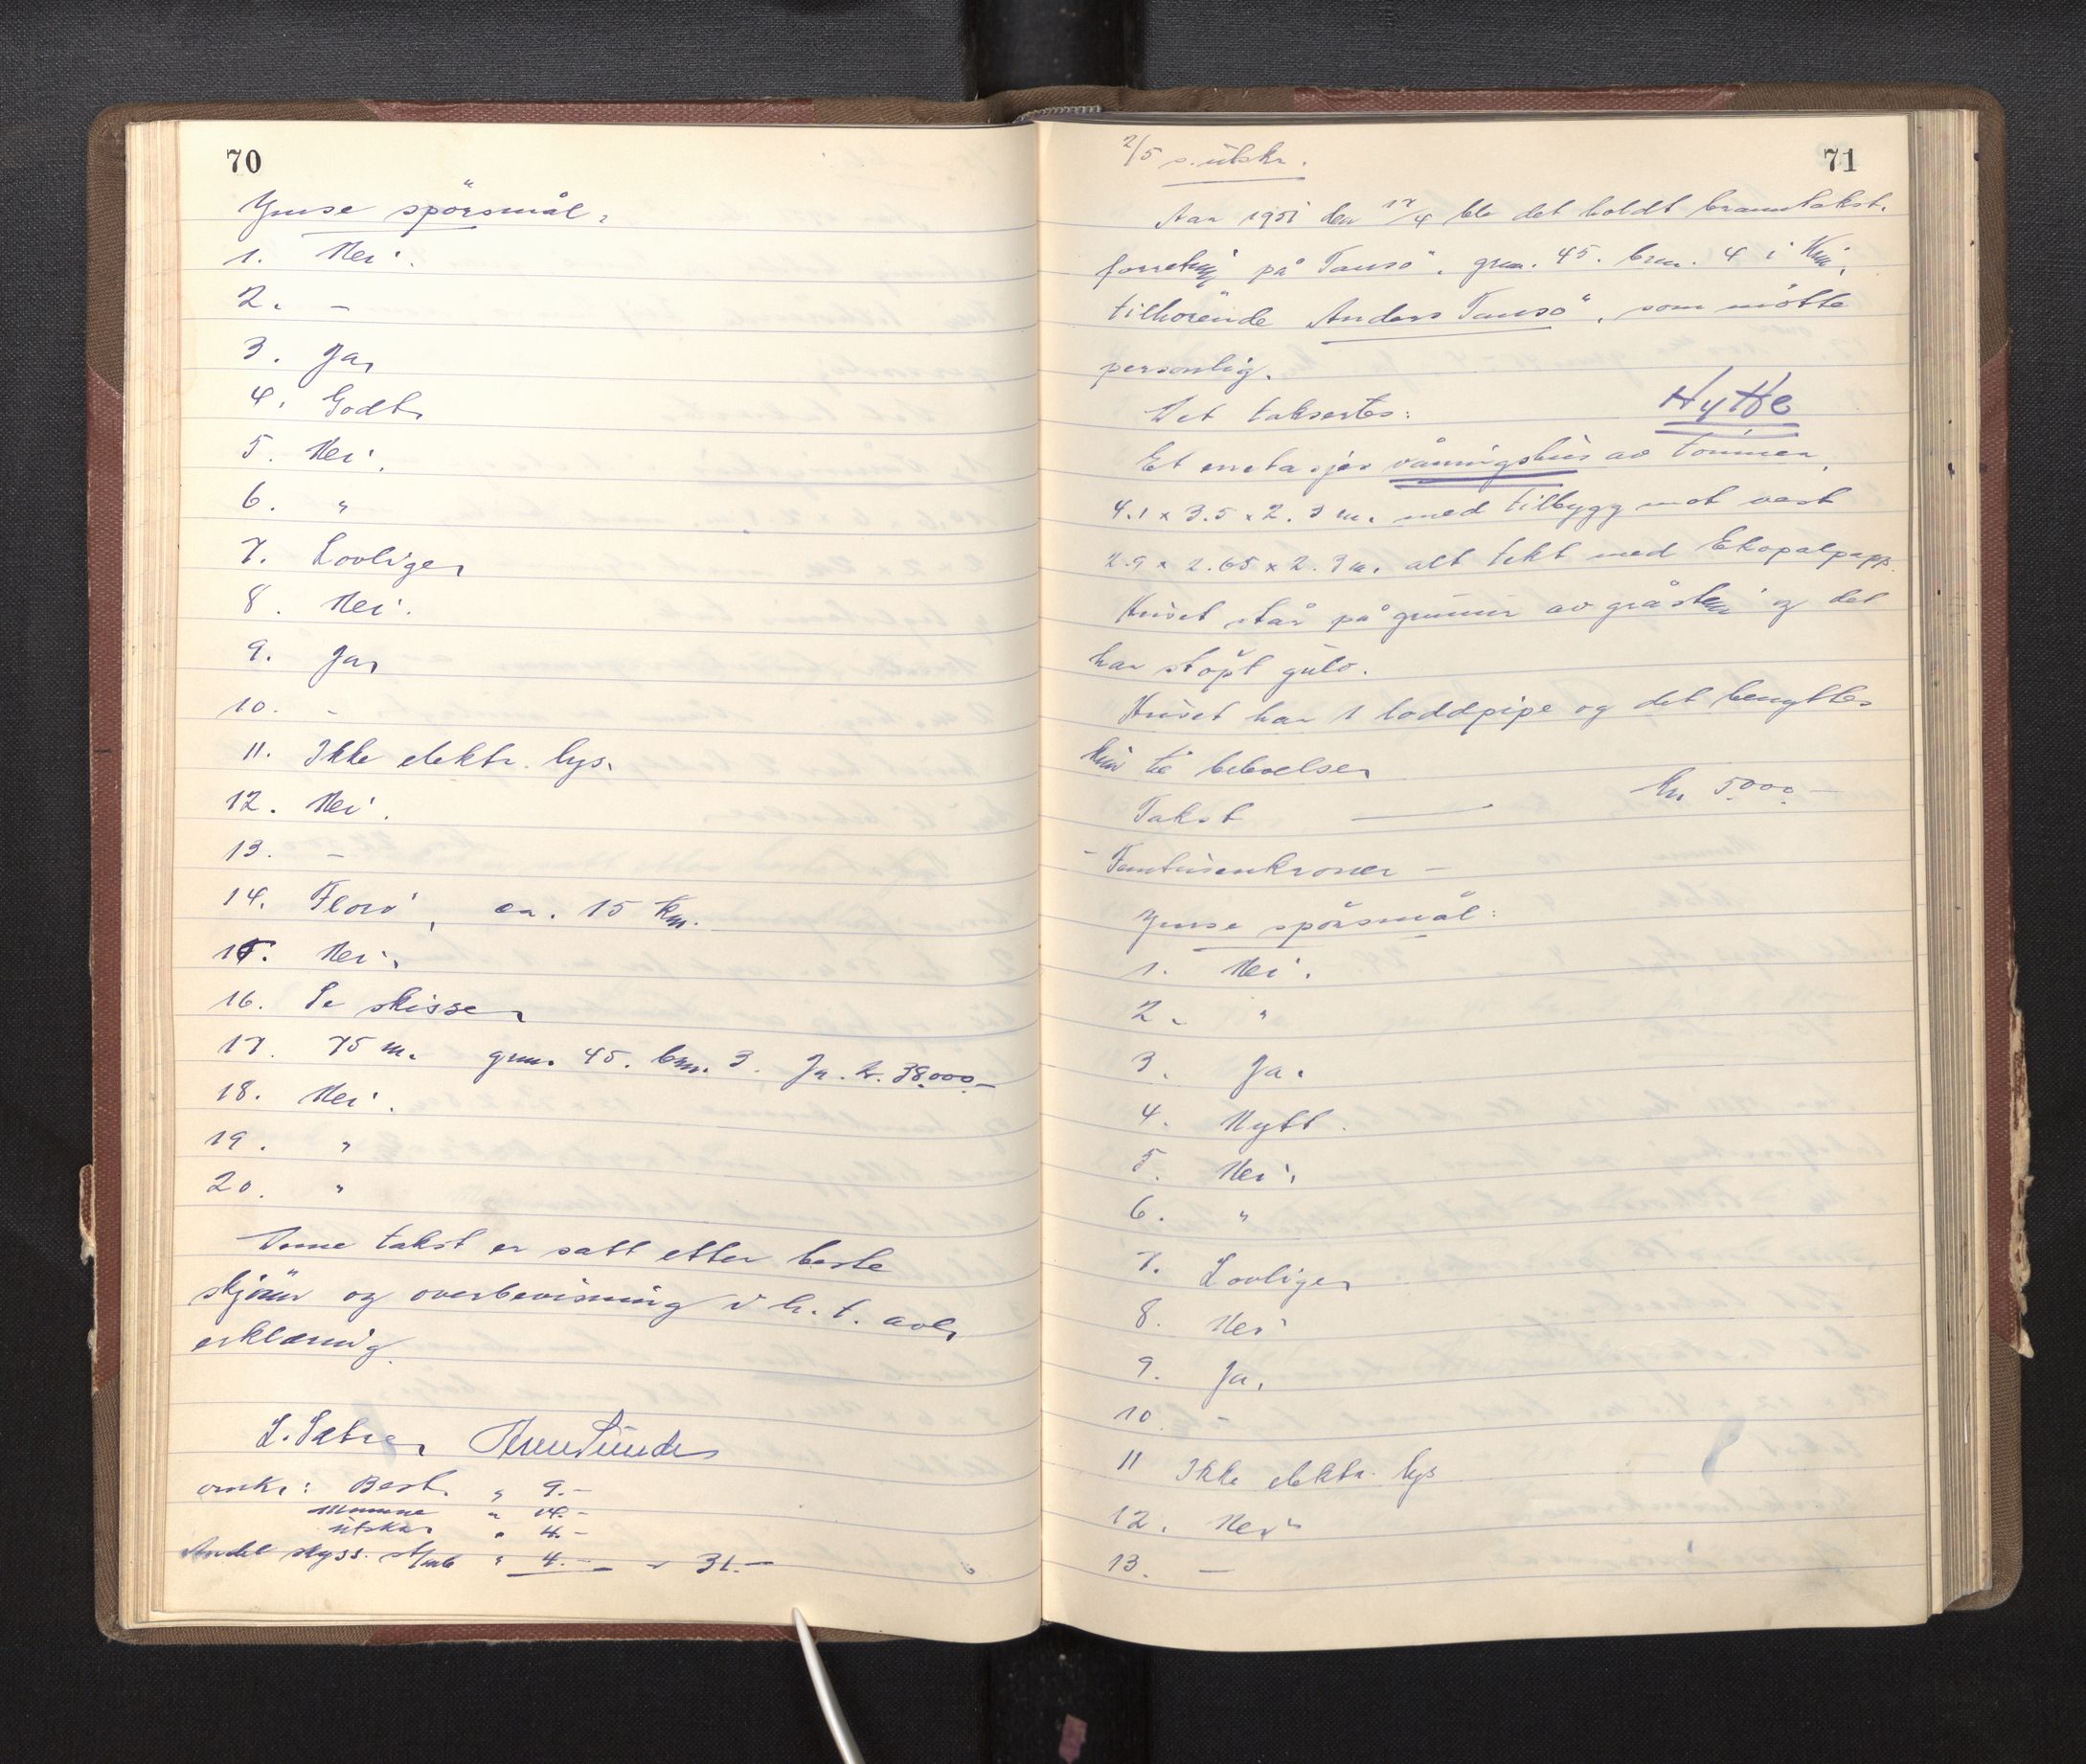 70
Ymse spörsmål.
1. Nei.
2. –
3. Ja.
4. Godt.
5. Nei.
6. "
7. Lovlige.
8. Nei.
9. Ja.
10. –
11. Ikke elektr. lys.
12. Nei.
13. –
14. Florö, ca. 15 km.
15. Nei.
16. Se skisse.
17. 75 m. grn. 45. brn. 3. Ja. kr. 38.000.–
18. Nei.
19. "
20. "
Denne takst er satt etter beste
skjönn og overbevisning i h. t. avl.
erklæring.
L. Sætre.
omk.: Best. " 9.–
" 14.–
utskr. " 4.–
Andel skyss. " 4.– – 31.–
71
2/5 s. utskr.
Aar 1951 den 17/4 ble det holdt branntakst.
forretning på Tansö. grn. 45. brn. 4 i Kinn.
tilhörende Anders Tansö, som mötte
personlig.
Hytte
Det takseres:
Et enetasjes våningshus av tömmer,
4.1 x 3.5 x 2.3 m. med tilbygg mot vest
2.9 x 2.65 x 2.3 m. alt tekt med Ekopalpapp.
Huset står på grunnmur av gråstein og det
har stöpt gulv.
Huset har 1 loddpipe og det benyttes
kun til beboelse.
Takst — kr. 5.000.–
– Femtusenkroner –
Ymse spörsmål:
1. Nei.
2. "
3. Ja.
4. Nytt.
5. Nei.
6. "
7. Lovlige.
8. Nei
9. Ja.
10. –
11 Ikke elektr. lys
12. Nei
13. –